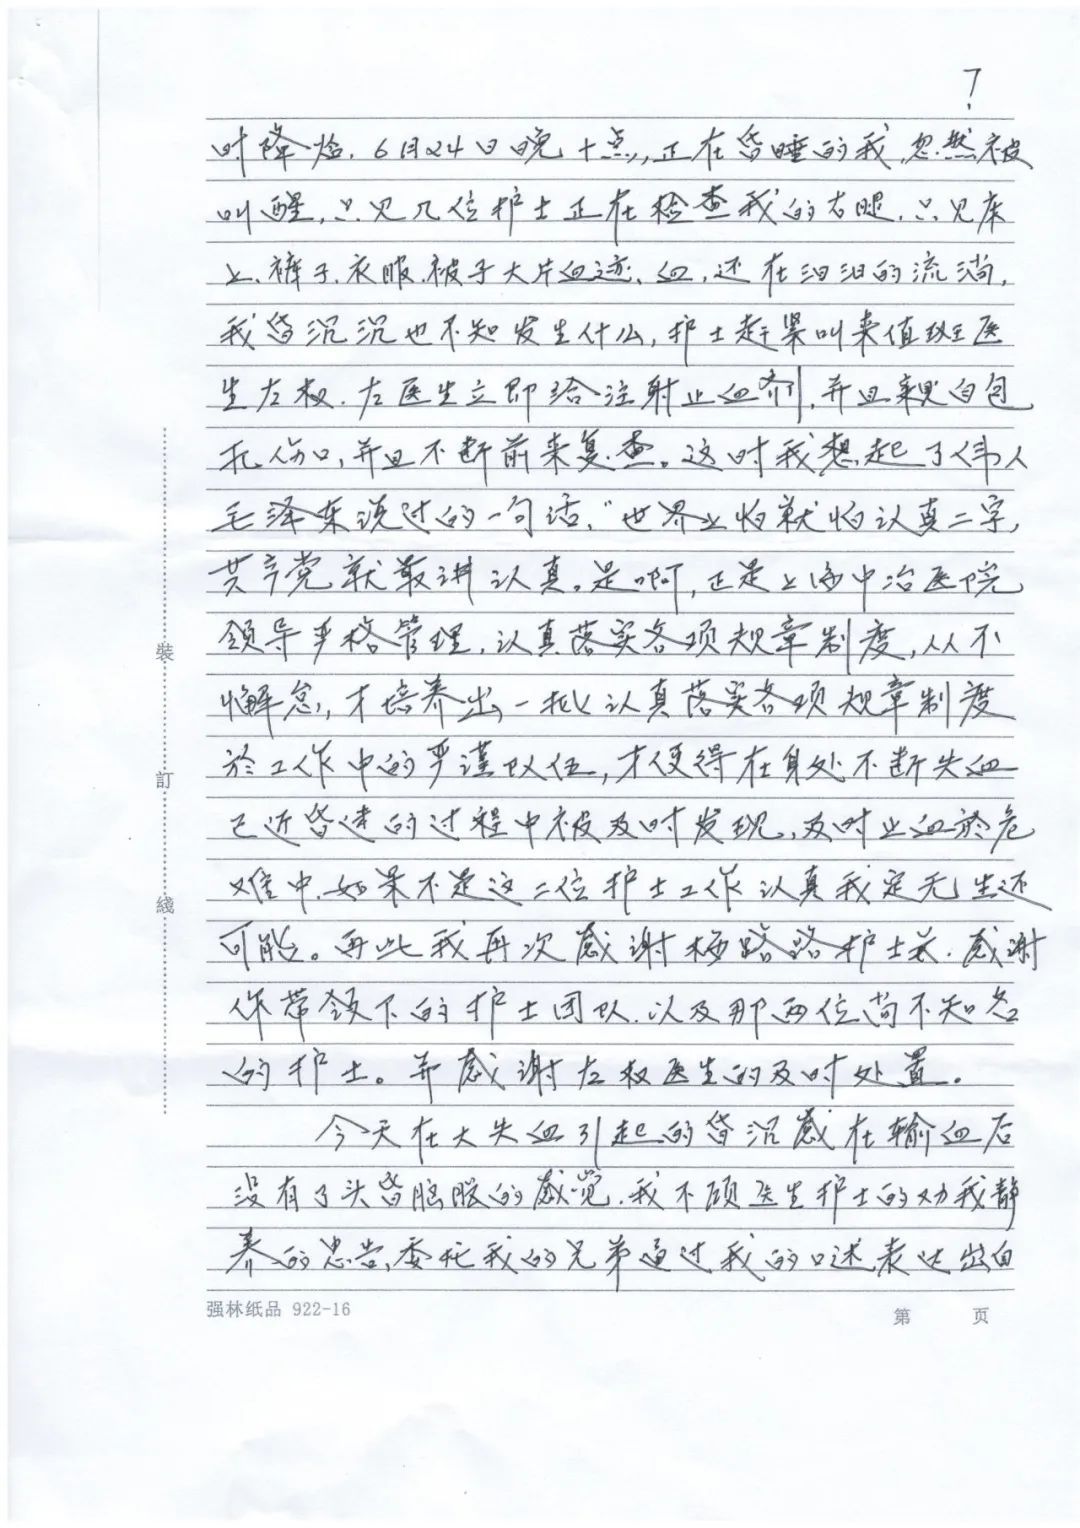 7
时降临.6月24日晚十点,正在昏睡的我,忽然被
叫醒,只见几位护士正在检查我的右腿.只见床
上.裤子.衣服.被子大片血迹、血,还在汩汩的流淌,
我昏沉沉也不知发生什么,护士赶紧叫来值班医
生左权.左医生立即给注射止血剂,并且亲自包
扎伤口,并且不断前来复查。这时我想起了伟人
毛泽东说过的一句话,“世界上怕就怕认真二字,
共产党就最讲认真。是啊,正是上海中冶医院
领导严格管理,认真落实各项规章制度,从不
懈怠,才培养出一批认真落实各项规章制度
於工作中的严谨队伍,才使得在身处不断失血
已近昏迷的过程中被及时发现,及时止血於危
难中.如果不是这二位护士工作认真我定无生还
可能。再此我再次感谢 路路护士长.感谢
你带领下的护士团队.以及那两位尚不知名
的护士。并感谢左权医生的及时处置。
今天在大失血引起的昏沉感在输血后
没有了头昏脑胀的感觉.我不顾医生护士的劝我静
养的忠告,委托我的兄弟通过我的口述,表达出自
裝
訂
綫
强林纸品 922-16
第 页